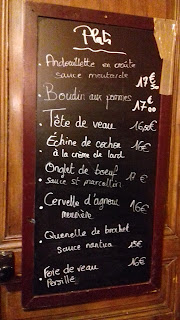 Plats
Andouillette en croûte
sauce moutarde
Boudin aux pommes
17€
00
Tête de veau 16,50€
Échine de cochon 16€
à la crème de lard
Onglet de boeuf
sauce st marcellin
Cervelle d'agneau
meunière 16€
Quenelle de brochet
sauce nantua 15€
Foie de veau 16€
Persillé